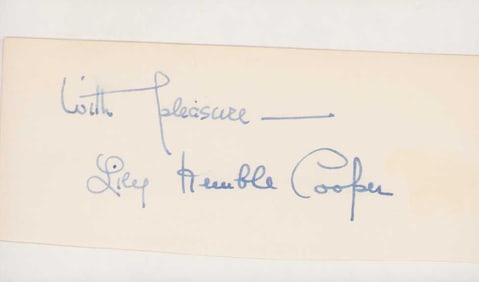 With pleasure —
Lily Kemble Cooper